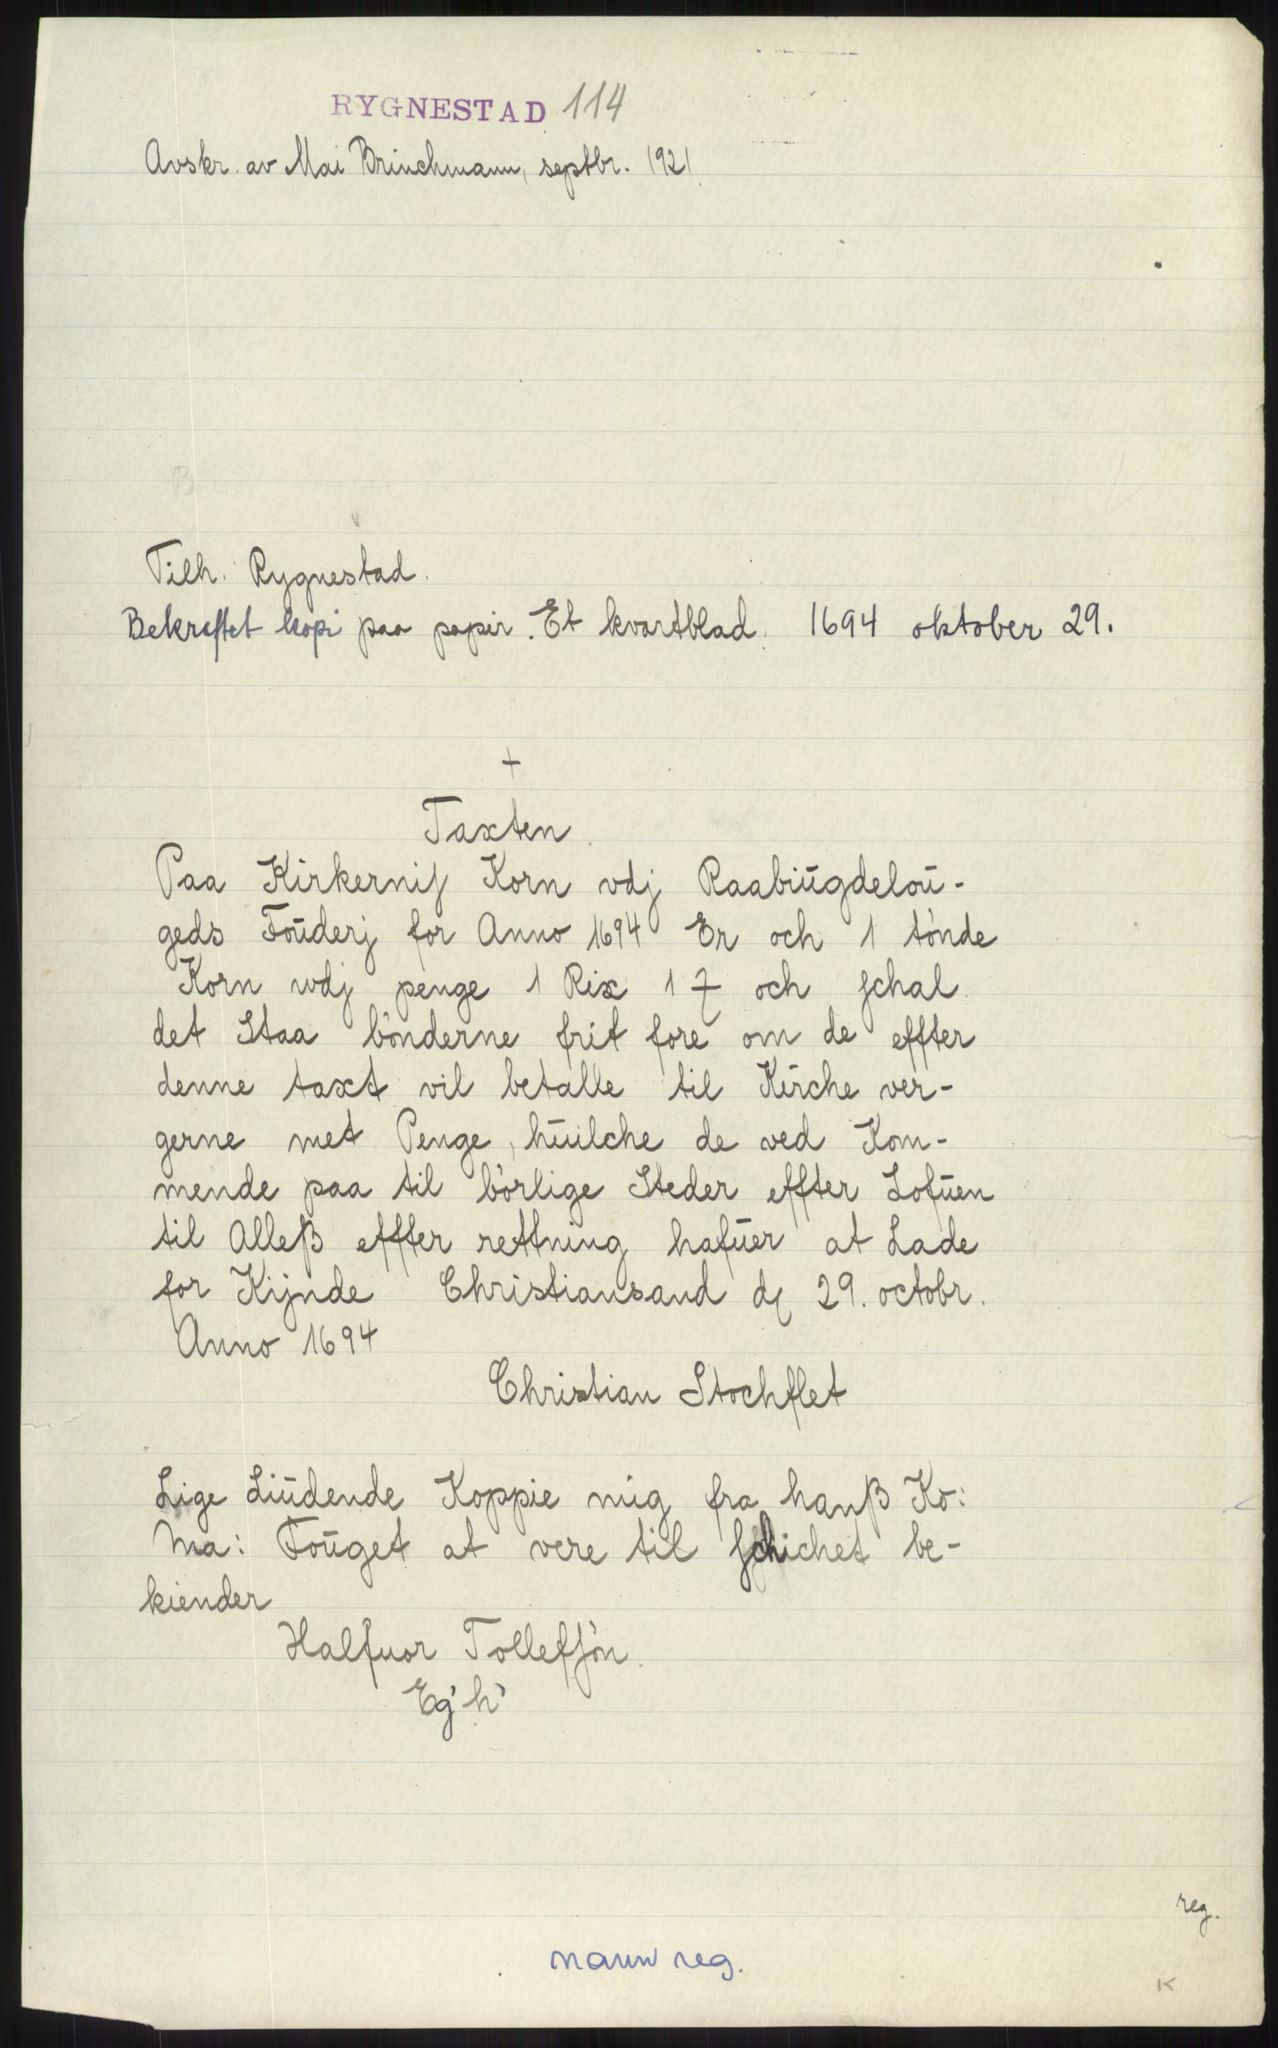 RYGNESTAD 114
Avskr. av Mai Brinchmann, septbr. 1921
Tilh. Rygnestad.
Bekræftet kopi paa papir. Et kvartblad. 1694 oktober 29.
+
Taxten
Paa Kirkernis Korn vdj Raabiūgdeloū-
geds Foūderj for Anno 1694 Er och 1 tønde
Korn wdj penge 1 Rix 1 och schal
det Staa bønderne frit fore om de effter
denne taxt vil betalle til Kirche ver-
gerne met Penge, hūilche de ved Kom-
mende paa til børlige Steder effter Lofūen
til Alleß effter rettning hafūer at Lade
for Kijnde Christiansand d 29. octobr.
Anno 1694
Christian Stochflet
Lige Liūdende Koppie mig fra hanß Ko:
Ma: Foūget at vere til schichet be-
kiender
Halfuor Tollefsøn.
Eg' h'
reg.
navn reg.
K